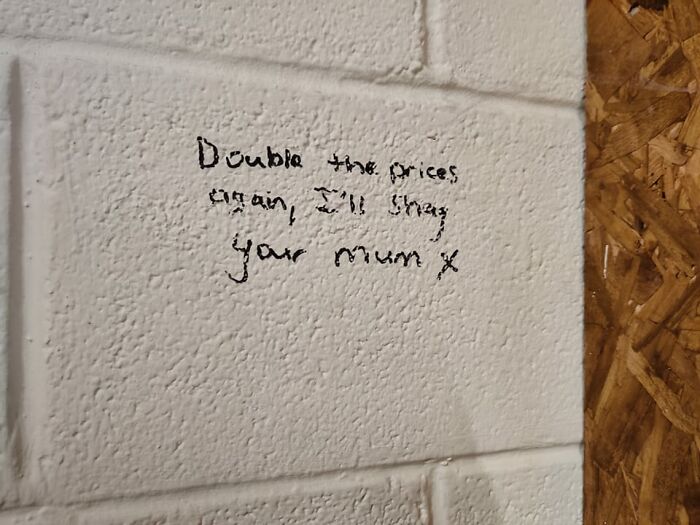 Double the prices
again, I'll shag
your mum x